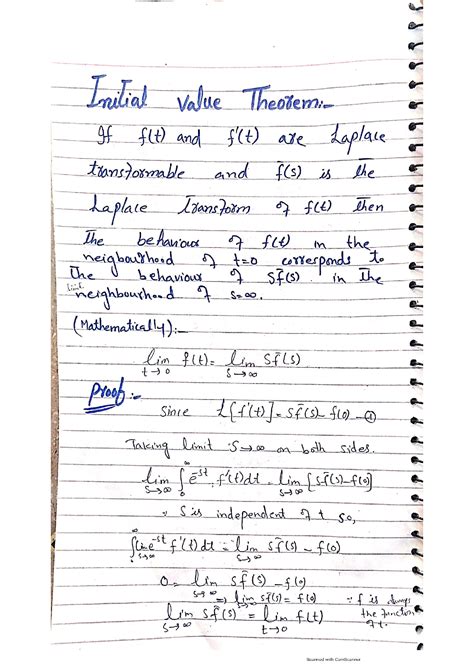 Initial Value Theorem:-
If f(t) and f'(t) are Laplace
transformable and f̄(s) is the
Laplace transform of f(t) then
The behaviour of f(t) in the
neigbourhood of t=0 corresponds to
The behaviour of Sf̄(s) in the
neighbourhood of s=∞.
(Mathematically):-
lim f(t) = lim Sf̄(s)
t→0 s→∞
Proof:-
Since L[f'(t)] = Sf̄(s) - f(0) -
Taking limit S→∞ on both sides.
lim ∫₀^∞ e^-st . f'(t)dt = lim [Sf̄(s) - f(0)]
s→∞ s→∞
∵ S is independent of t so,
∫₀^∞ lim e^-st f'(t)dt = lim Sf̄(s) - f(0)
s→∞ s→∞
0 = lim Sf̄(s) - f(0)
s→∞ ⇒ lim Sf̄(s) = f(0) ∵ f is always
lim Sf̄(s) = lim f(t) the function
s→∞ t→0 of t.
Scanned with CamScanner